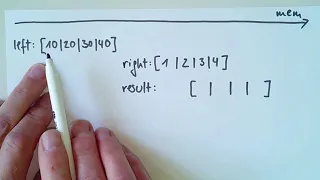 mem
left: [10|20|30|40]
right: [1|2|3|4]
result: [ | | | ]